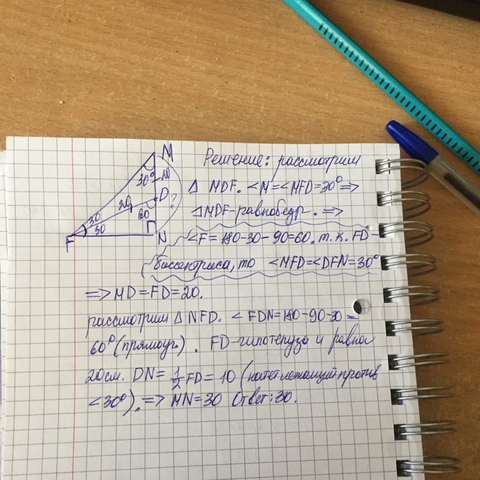 M
30°
20
D
20
60
?
30
30
F
N
Решение: рассмотрим
Δ MDF. <M=<MFD=30° =>
ΔMDF-равнобедр. =>
<F=180-30-90=60. т.к. FD-
биссектриса, то <MFD=<DFN=30°
=> MD=FD=20.
рассмотрим Δ NFD. < FDN=180-90-30=
60° (прямоуг.). FD-гипотенуза и равна
20см. DN= 1/2 FD= 10 (катет лежащий против
<30°). => MN=30 Ответ: 30.